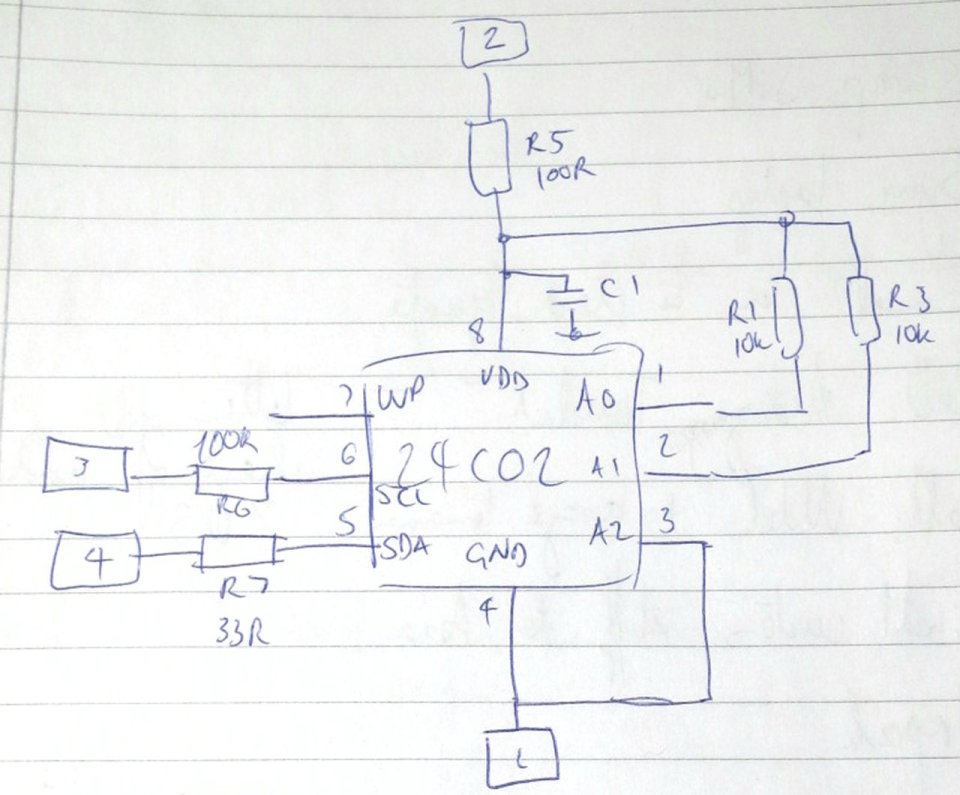 2
R5
100R
C1
R1
10k
R3
10k
8
VDD
7
WP
A0
1
100R
3
R6
6
SCL
24C02
A1
2
4
R7
33R
5
SDA
GND
A2
3
4
1